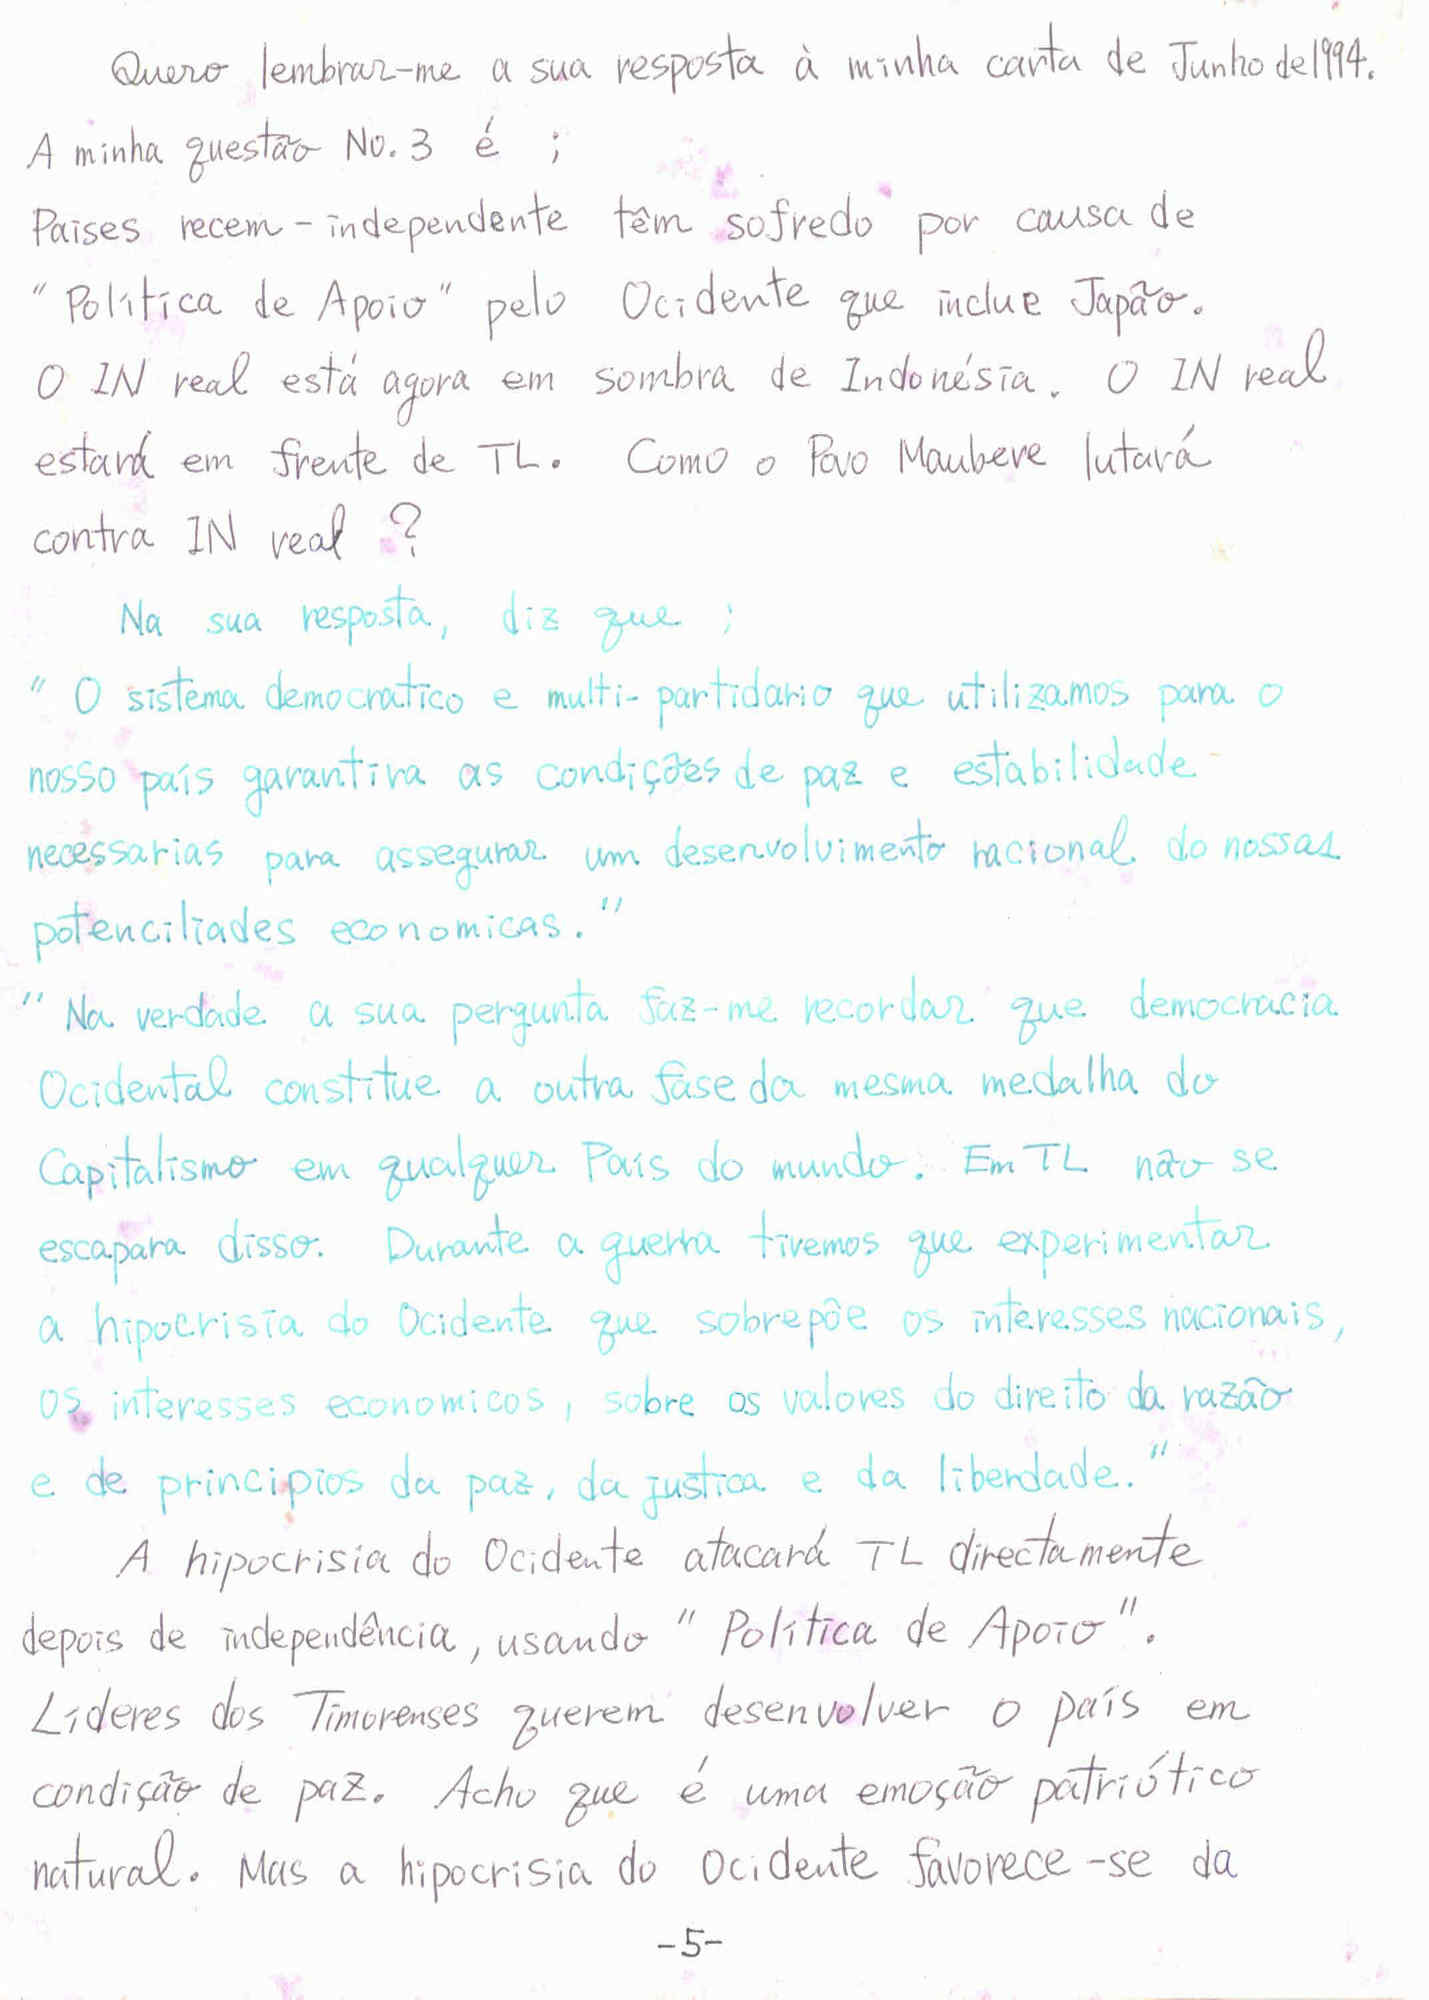 Quero lembrar-me a sua resposta à minha carta de Junho de 1994.
A minha questão No. 3 é ;
Paises recem-independente têm sofredo por causa de
"Política de Apoio" pelo Ocidente que inclue Japão.
O IN real está agora em sombra de Indonésia. O IN real
estará em frente de TL. Como o Povo Maubere lutará
contra IN real ?
Na sua resposta, diz que ;
"O sistema democratico e multi-partidario que utilizamos para o
nosso país garantira as condições de paz e estabilidade
necessarias para assegurar um desenvolvimento racional do nossas
potenciliades economicas."
"Na verdade a sua pergunta faz-me recordar que democracia
Ocidental constitue a outra fase da mesma medalha do
Capitalismo em qualquer País do mundo. Em TL não se
escapara disso. Durante a guerra tivemos que experimentar
a hipocrisia do Ocidente que sobrepõe os interesses nacionais,
os interesses economicos, sobre os valores do direito da razão
e de principios da paz, da justica e da liberdade."
A hipocrisia do Ocidente atacará TL directamente
depois de independência, usando "Política de Apoio".
Líderes dos Timorenses querem desenvolver o país em
condição de paz. Acho que é uma emoção patriótico
natural. Mas a hipocrisia do Ocidente favorece-se da
-5-